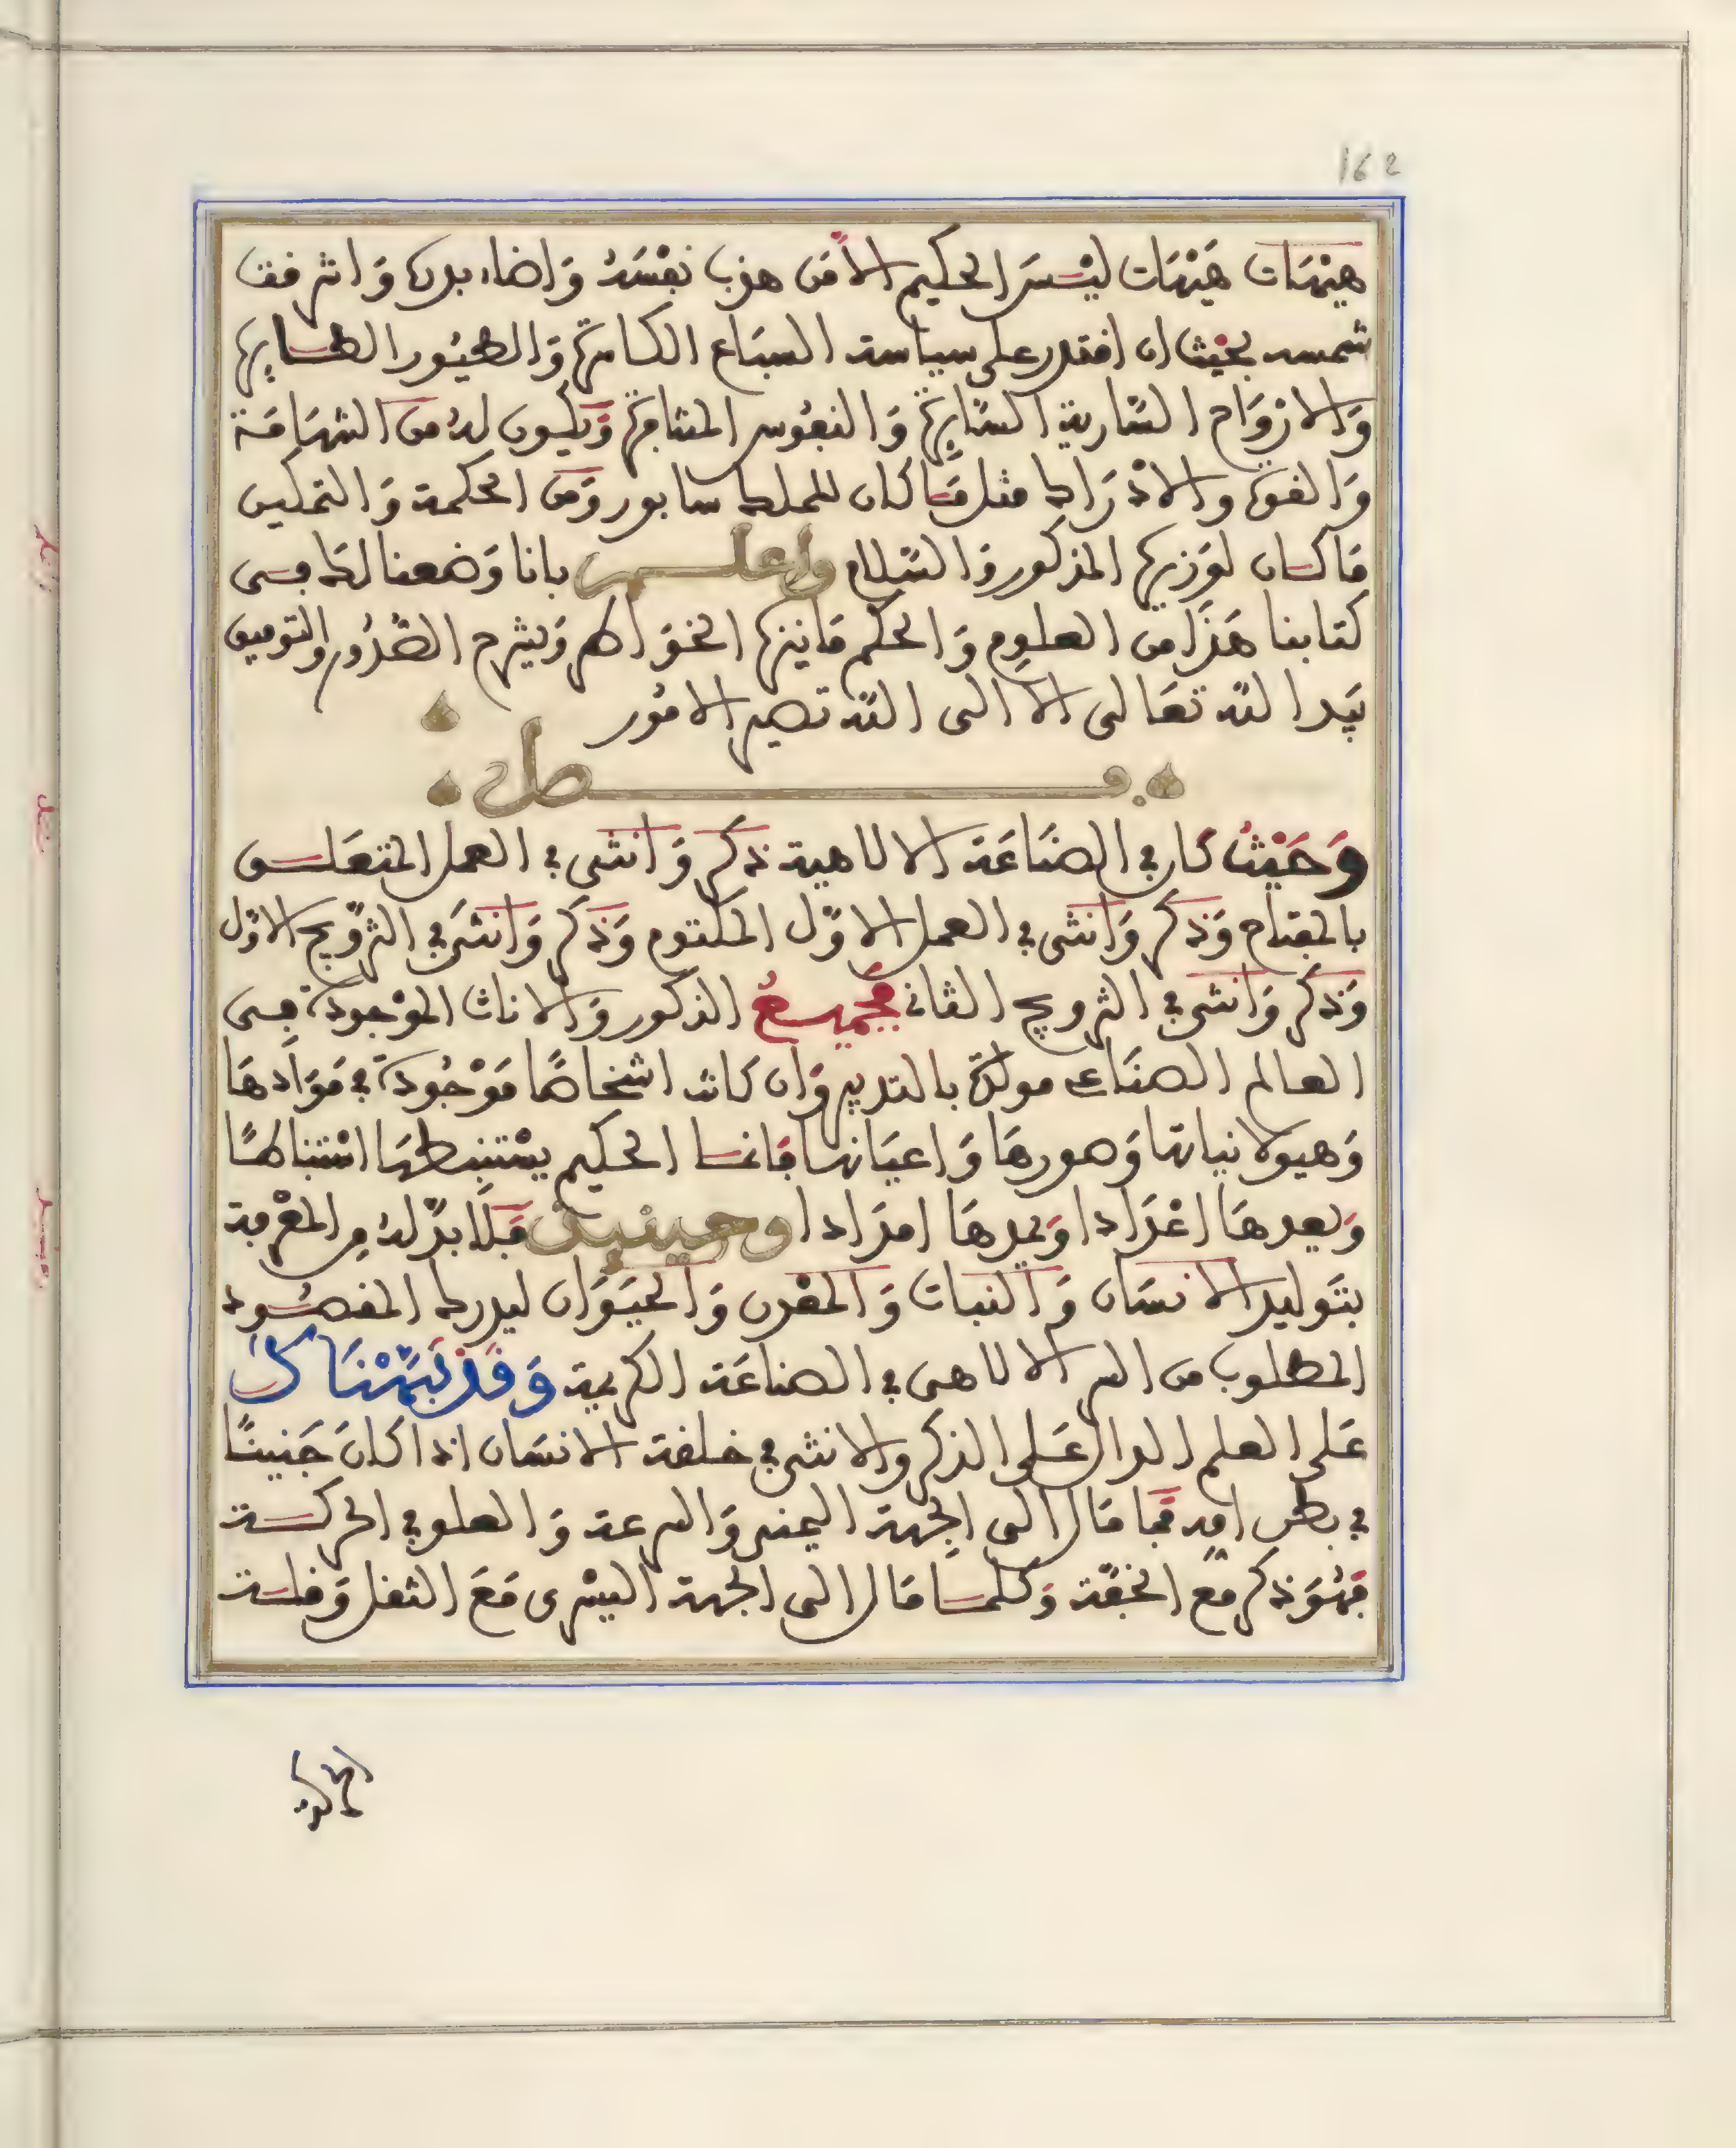 162
هيهات هيهات ليس الحكيم الا من هذب نفسه واضاء بدره واشرفت
شمسه بحيث ان اقتدر على سياسة السباع الكاسرة والطيور الطايرة
والارواح السارية السايرة والنفوس المتنافرة ويكون له من الشهامة
والقوة والادراك مثل ما كان للملك سابور ومن الحكمة والتمكين
ما كان لوزيره المذكور والسلام واعلم بانا وضعنا لك في
كتابنا هذا من العلوم والحكم ما ينزه الخواطر ويشرح الصدور والتوفيق
بيد الله تعالى الا الى الله تصير الامور
فصل
وحيث كان في الصناعة الالاهية ذكر وانثى في العمل المتعلق
بالمفتاح وذكر وانثى في العمل الاول المكتوم وذكر وانثى في التزويج الاول
وذكر وانثى في التزويج الثاني فجميع الذكور والاناث الموجودة في
العالم الصناعي مولدة بالتدبير وان كانت اشخاصا موجودة في موادها
وهيولانياتها وصورها واعيانها فانما الحكيم يستنبطها استنباطا
ويعدها اعدادا ويمدها امدادا وحينئذ فلا بد له من المعرفة
بتوليد الانسان والنبات والمعدن والحيوان ليدرك المقصود
المطلوب من السر الالاهي في الصناعة الكريمة وقد نبهناك
على العلم الدال على الذكر والانثى في خلقة الانسان اذا كان جنينا
في بطن امه فما مال الى الجهة اليمنى والسرعة والعلو في الحركة
فهو ذكر مع الخفة وكلما مال الى الجهة اليسرى مع الثقل وقلة
الحركة